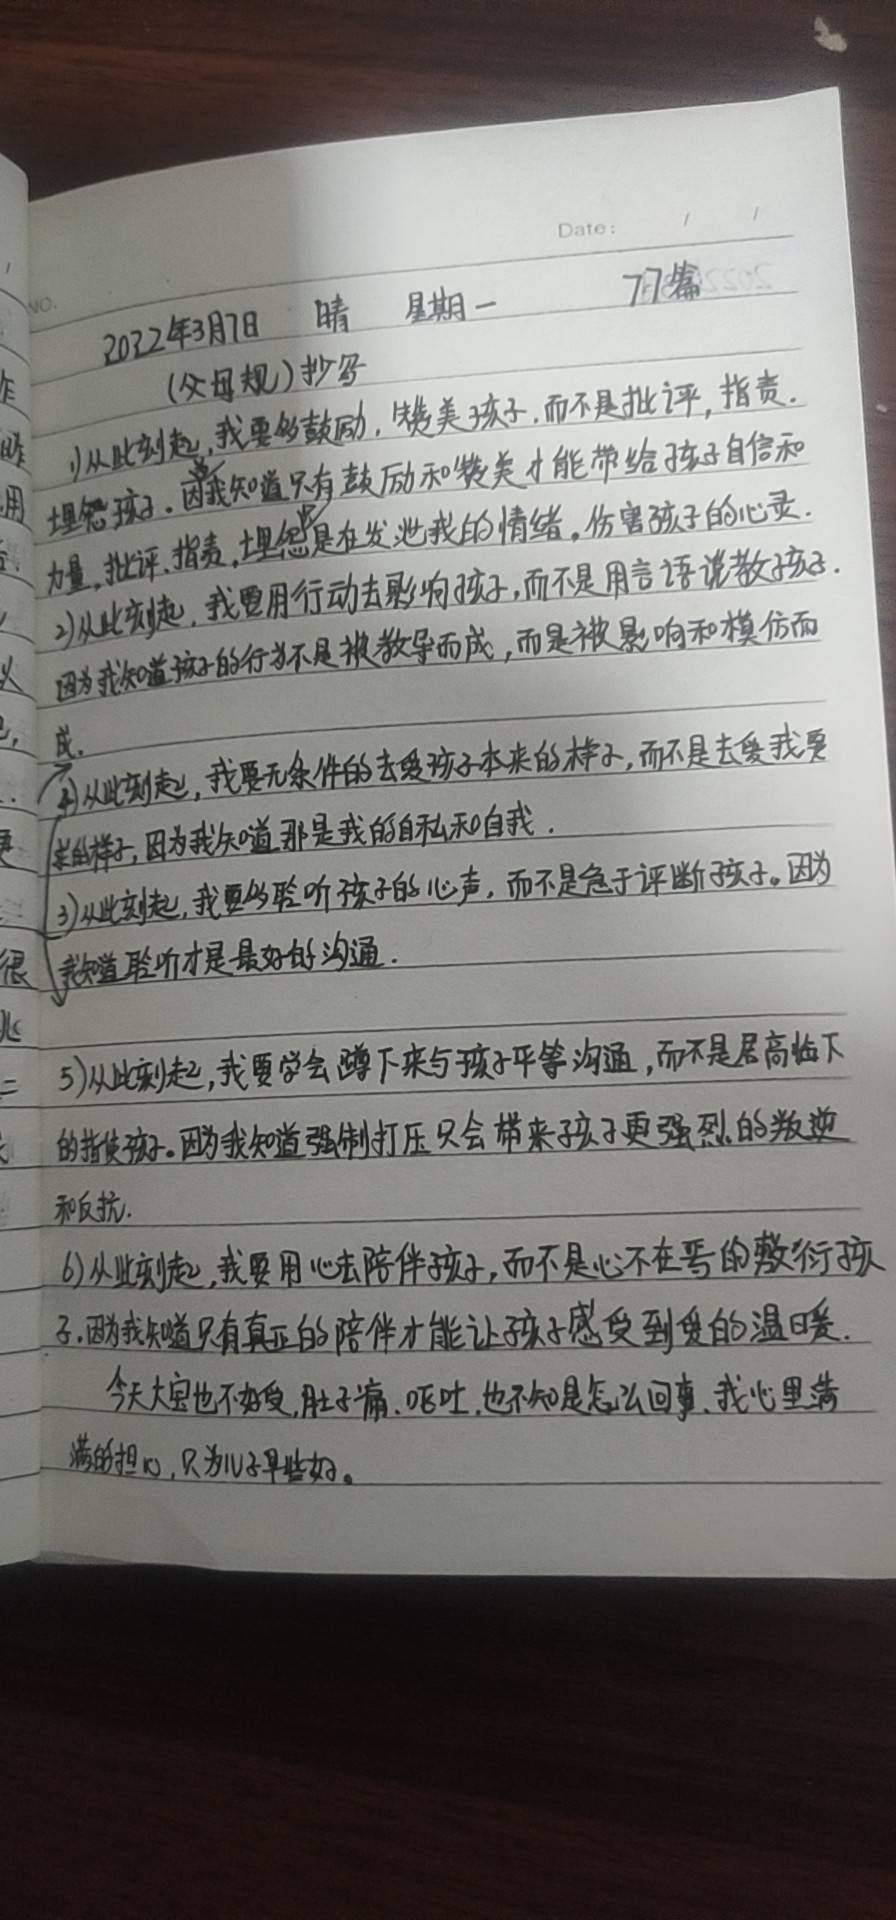 Date: / /
NO.
2022年3月7日 晴 星期一 77篇
(父母规)抄写
1)从此刻起,我要多鼓励,赞美孩子,而不是批评,指责.
埋怨孩子.因为我知道只有鼓励和赞美才能带给孩子自信和
力量,批评、指责,埋怨只是在发泄我的情绪。伤害孩子的心灵.
2)从此刻起,我要用行动去影响孩子,而不是用言语说教孩子.
因为我知道孩子的行为不是被教导而成,而是被影响和模仿而
成.
4)从此刻起,我要无条件的去爱孩子本来的样子,而不是去爱我要
求的样子,因为我知道那是我的自私和自我.
3)从此刻起,我要多聆听孩子的心声,而不是急于评断孩子。因为
我知道聆听才是最好的沟通.
5)从此刻起,我要学会蹲下来与孩子平等沟通,而不是居高临下
的指使孩子。因为我知道强制打压只会带来孩子更强烈的叛逆
和反抗.
6)从此刻起,我要用心去陪伴孩子,而不是心不在焉的敷衍孩
子.因为我知道只有真正的陪伴才能让孩子感受到爱的温暖.
今天大宝也不好受,肚子痛.呕吐.也不知是怎么回事、我心里满
满的担心,只为儿子早些好。